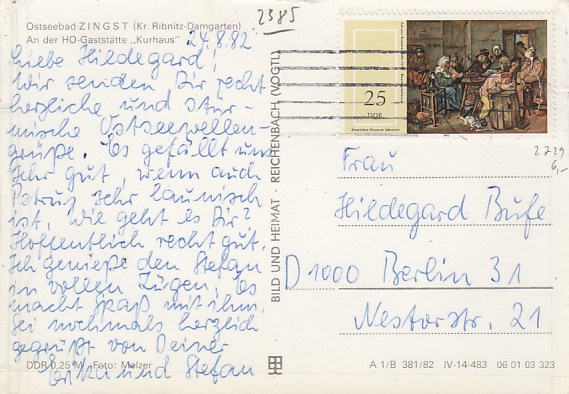 Ostseebad ZINGST (Kr. Ribnitz-Damgarten)
An der HO-Gaststätte „Kurhaus"
24.8.82
Liebe Hildegard,
Wir senden Dir recht
herzliche und stür-
mische Ostseewellen-
grüße. Es gefällt uns
sehr gut, wenn auch
Petrus sehr launisch
ist, wie geht es Dir?
Hoffentlich recht gut.
Ich genieße den Stefan
in vollen Zügen, es
macht Spaß mit ihm.
Sei nochmals herzlich
gegrüßt von Deiner
Erika und Stefan
DDR 0,25 M Foto: Melzer
BILD UND HEIMAT · REICHENBACH (VOGTL)
2385
25
DDR
2729
6,-
Frau
Hildegard Bufe
D 1000 Berlin 31
Nestorstr. 21
A 1/B 381/82 IV-14-483 06 01 03 323